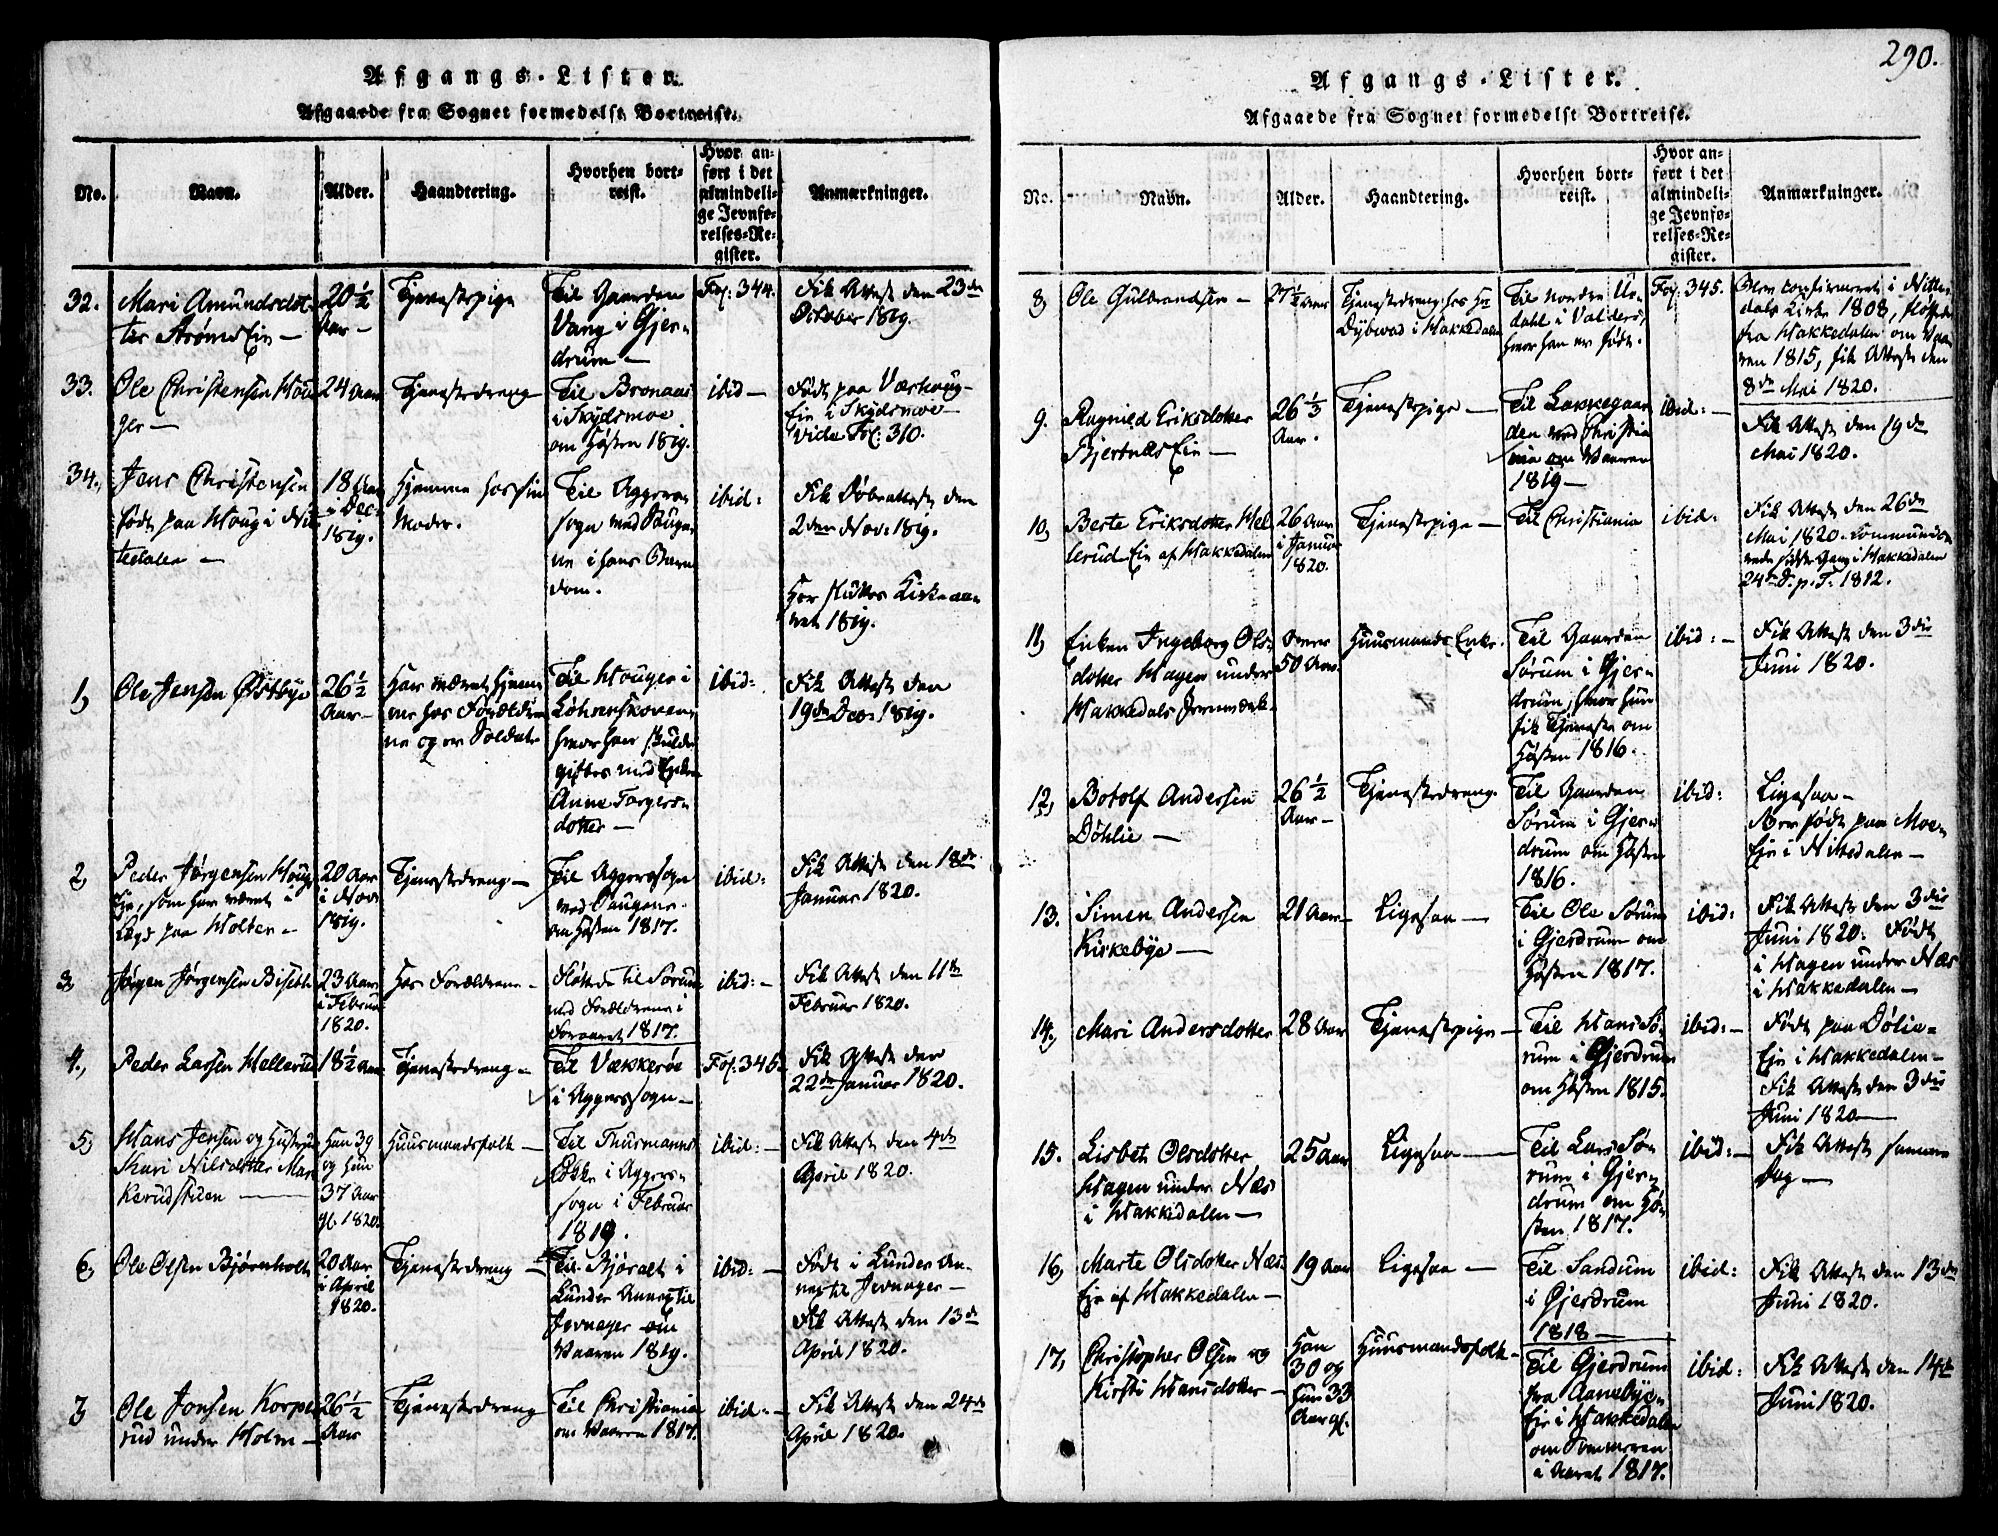 Afgangs-Lister.
Afgaaede fra Sognet formedelst Bortreise.
No.
Navn.
Alder.
Haandtering.
Hvorhen bort-
reist.
Hvor an-
ført i det
almindeli-
ge Jevnfø-
relses-Re-
gister.
Anmærkninger.
32.
Mari Amundsdot-
ter StrømsEie —
20 1/2
Aar —
Tjenestepige
Til Gaarden
Vang i Gjer-
drum —
Fol: 344.
Fik Attest den 23de
October 1819.
33.
Ole Christensen Hou-
ger —
24 Aar
Tjenestedreng
Til Bronaas
i Skydsmoe
om Høsten 1819.
ibid —
Født paa Værhoug-
Eie i Skydsmoe —
vide Fol: 310.
34.
Jens Christensen
født paa Houg i Nit-
tedalen —
18 Aar
i Dec:
1819.
Hjemme hos sin
Moder.
Til Aggers
sogn med
i hans Barn
dom.
ibid:
Fik Døbeattest den
2den Nov: 1819.
Her sluttes Kirkeaa-
ret 1819.
1,
Ole Jensen Østbye
26 1/2
Aar —
Har været hjem-
me hos Forældre-
ne og er Soldat.
Til Houger i
Løhrenskoven,
hvor han skulde
giftes med Enken
Anne Torgers-
dotter —
ibid:
Fik Attest den
19de Dec: 1819.
2,
Peder Jørgensen Houg-
Eje, som har været i
Lægd paa Holter —
20 Aar
i Nov:
1819.
Tjenestedreng —
Til Aggerssogn
med
om Høsten 1817.
ibid:
Fik Attest den 18de
Januar 1820.
3,
Jørgen Jørgensen
23 Aar
i Februar
1820.
Hos Forældrene —
Flöttede til Sørum
med Forældrene i
Foraaret 1817.
ibid: —
Fik Attest den 11te
Februar 1820.
4.,
Peder Larsen Hellerud
18 1/2 Aar
Tjenestedreng —
Til Vækkerøe
i Aggerssogn —
Fol. 345.
Fik Attest den
22de Januar 1820.
5,
Hans Jensen og Hustrue
Kari Nilsdotter Mar-
kerudstuen —
Han 39
og Hun
37 Aar
gl. 1820.
Huusmandsfolk —
Til Thurmanns
Løkke i Aggers-
sogn i Februar
1819.
ibid: —
Fik Attest den 4de
April 1820.
6,
Ole Olsen Bjørnholt
20 Aar
i April
1820.
Tjenestedreng —
Til Bjøralt i
Lunder Annex til
Jevnager om
Vaaren 1819.
ibid: —
Født i Lunder An-
nex til Jevnager —
Fik Attest den 13de
April 1820.
7
Ole Jonsen Korpe-
rud under Holm —
26 1/2
Aar
Tjenestedreng
Til Christiania
om Vaaren 1817.
ibid: —
Fik Attest den 24de
April 1820.
290.
Afgangs-Lister.
Afgaaede fra Sognet formedelst Bortreise.
No.
Navn.
Alder.
Haandtering.
Hvorhen bort-
reist.
Hvor an-
ført i det
almindeli-
ge Jevnfø-
relses-Re-
gister.
Anmærkninger.
8,
Ole Gulbrandsen —
27 1/2 Aar
Tjenestedreng hos Hr
Dybwad i Hakkedalen
Til nordre Ur-
dahl i Valders,
hvor han er født.
Fol: 345.
Blev confirmeret i Nitte-
dals Kirke 1808, flöttede
fra Hakkedalen om Vaa-
ren 1815, fik Attest den
8de Mai 1820.
9.
Ragnild Eriksdotter
BjertnæsEie —
26 1/3
Aar.
Tjenestepige —
Til Løkkegaar
den ved Christia
nia om Vaaren
1819 —
ibid: —
Fik Attest den 19de
Mai 1820.
10,
Berte Eriksdotter Hel-
lerud Eie af Hakkedalen
26 Aar
i Januar
1820.
Tjenestepige —
Til Christiania
ibid:
Fik Attest den 26de
Mai 1820. Communice-
rede sidste Gang i Hakkedalen
24de S. p. T. 1812.
11,
Enken Ingeborg Ols-
dotter Hagen under
Hakkedals Jernværk.
over
50 Aar.
Huusmands Enke.
Til Gaarden
Sørum i Gjer-
drum, hvor hun
fik Tjeneste om
Høsten 1816.
ibid: —
Fik Attest den 3die
Juni 1820.
12,
Botolf Andersen
Döhlie —
26 1/2
Aar —
Tjenestedreng.
Til Gaarden
Sørum i Gjer-
drum om Høsten
1816.
ibid:
Ligesaa —
Er født paa Moe-
Eje i Nittedalen —
13.
Simen Andersen
Kirkebye —
21 Aar —
Ligesaa —
Til Ole Sørum
i Gjerdrum om
Høsten 1817.
ibid:
Fik Attest den 3die
Juni 1820. Født
i Hagen under Næs
i Hakkedalen —
14.
Mari Andersdotter
28 Aar
Tjenestepige —
Til Hans Sø-
rum i Gjerdrum
om Høsten 1815.
ibid: —
Født paa Dølie-
Eje i Hakkedalen —
Fik Attest den 3die
Juni 1820 —
15.
Lisbet Olsdotter
Hagen under Næs
i Hakkedalen —
25 Aar
Ligesaa —
Til Lars Sø-
rum i Gjer-
drum om Hø-
sten 1817.
ibid: —
Fik Attest samme
Dag —
16,
Marte Olsdotter Næs-
Eje af Hakkedalen —
19 Aar
Ligesaa —
Til Sandum
i Gjerdrum
1818 —
ibid:
Fik Attest den 13de
Juni 1820.
17,
Christopher Olsen og
Kirsti Hansdotter —
Han
30 og
Hun 33
Aar gl.
Huusmandsfolk —
Til Gjerdrum
fra Aanebye-
Eje i Hakkedalen
om Sommeren
i Aaret 1817.
ibid:
Fik Attest den 14de
Juni 1820.